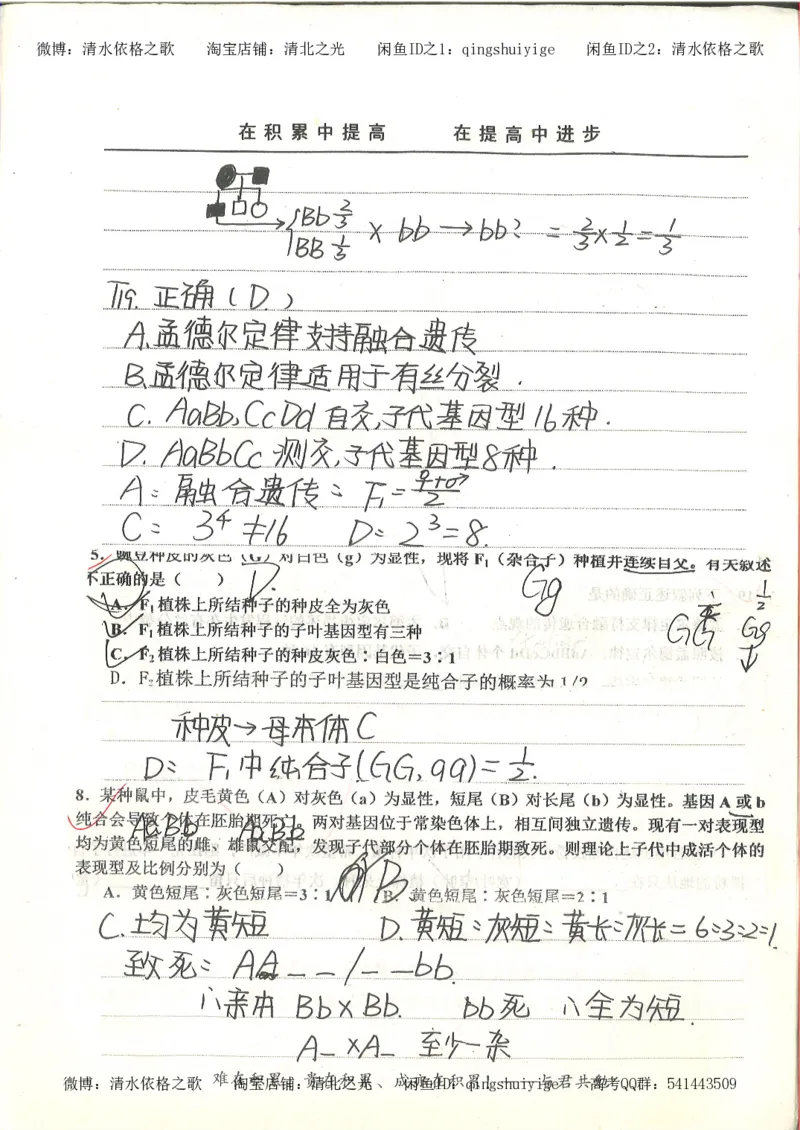 微博：清水依格之歌 淘宝店铺：清北之光 闲鱼ID之1：qingshuiyige 闲鱼ID之2：清水依格之歌
在积累中提高 在提高中进步
Bb 2/3
BB 1/3
× bb → bb? = 2/3 × 1/2 = 1/3
T19. 正确（D.）
A.孟德尔定律支持融合遗传
B.孟德尔定律适用于有丝分裂.
C. AaBb,CcDd自交,子代基因型16种.
D. AaBbCc测交,子代基因型8种.
A: 融合遗传: F₁=(♀+♂)/2
C: 3⁴≠16 D: 2³=8.
5．豌豆种皮的灰色（G）对白色（g）为显性，现将 F₁（杂合子）种植并连续自交。有关叙述
不正确的是（ ） D. Gg
A．F₁植株上所结种子的种皮全为灰色 1/2
B．F₁植株上所结种子的子叶基因型有三种 GG Gg
C．F₂植株上所结种子的种皮灰色∶白色=3∶1
D．F₂植株上所结种子的子叶基因型是纯合子的概率为 1/2
种皮→母本体C
D: F₁中纯合子(GG,gg)=1/2.
8．某种鼠中，皮毛黄色（A）对灰色（a）为显性，短尾（B）对长尾（b）为显性。基因 A 或 b
纯合会导致个体在胚胎期死亡。两对基因位于常染色体上，相互间独立遗传。现有一对表现型
AaBb AaBb
均为黄色短尾的雌、雄鼠交配，发现子代部分个体在胚胎期致死。则理论上子代中成活个体的
表现型及比例分别为（ ） B
A．黄色短尾∶灰色短尾=3∶1 B．黄色短尾∶灰色短尾=2∶1
C.均为黄短 D.黄短:灰短:黄长:灰长=6:3:2:1.
致死: AA__/__bb.
∴亲本 Bb×Bb. bb死 ∴全为短.
A_×A_ 至少一杂
微博：清水依格之歌 淘宝店铺：清北之光 闲鱼ID：qingshuiyige 高考QQ群：541443509